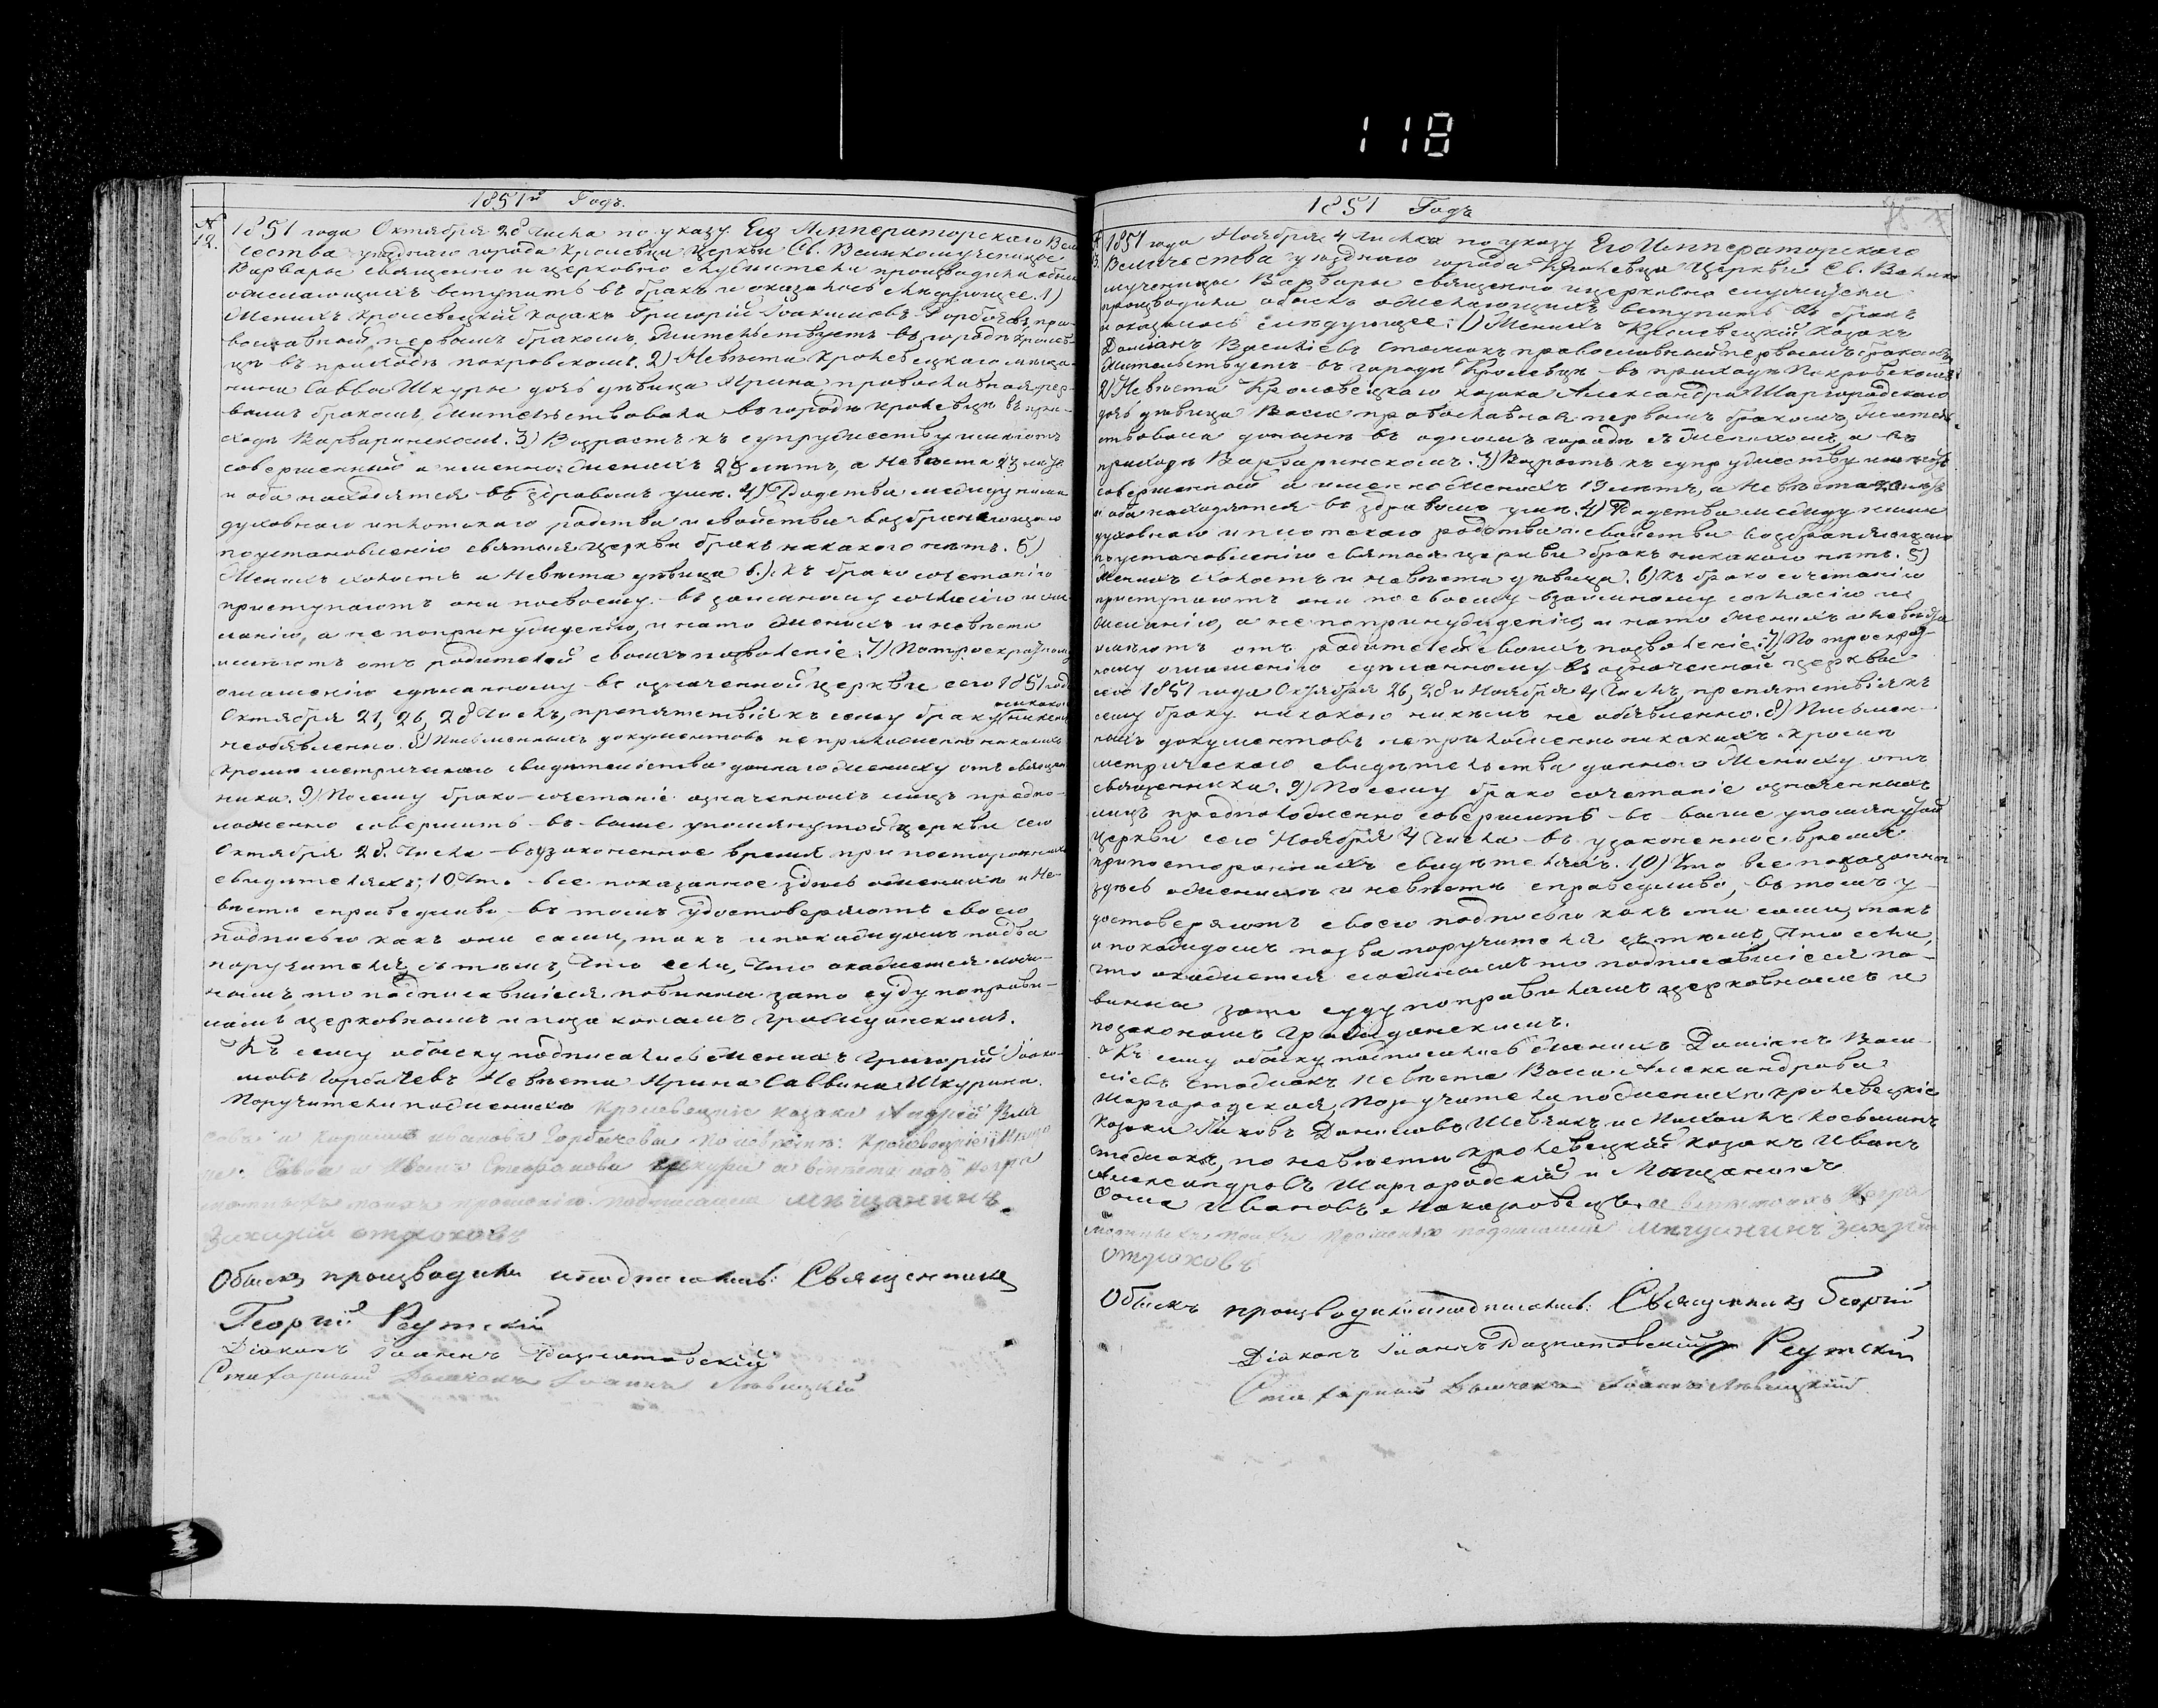 118
1851й Годъ.
№ 12.
1851 года Октября 28 числа по указу Его Императорскаго Вели-
чества уѣзднаго города Кролевца Церкви Св. Великомученицы
Варвары священно и церковно служители производили обыскъ
о желающихъ вступить въ бракъ и оказалось слѣдующее. 1)
Женихъ Кролевецкій козакъ Григорій Іоакимовъ Горбачевъ, пра-
вославный, первымъ бракомъ, жительствуетъ въ городѣ Кролев-
цѣ въ приходѣ покровскомъ. 2) Невѣста Кролевецкаго мѣща-
нина Саввы Шкуры дочь дѣвица Ирина православная, пер-
вымъ бракомъ, жительствовала въ городѣ Кролевцѣ въ при-
ходѣ Варваринскомъ. 3) Возрастъ къ супружеству имѣютъ
совершенный а именно: Женихъ 25 лѣтъ, а Невѣста 23 лѣтъ
и оба находятся въ здравомъ умѣ. 4) Родства между ними
духовнаго и плотскаго родства и свойства возбраняющаго
по установленію святыя церкви бракъ никакого нѣтъ. 5)
Женихъ холостъ и Невѣста дѣвица 6.) Къ брако сочетанію
приступаютъ они по своему взаимному согласію и же-
ланію, а не по принужденію, и на то Женихъ и невѣста
имѣютъ отъ родителей своихъ позволеніе. 7) По троекратному
оглашенію сдѣланному въ означенной церкви сего 1851 года
Октября 21, 26, 28 числъ, препятствія къ сему браку никакого никемъ
не объявленно. 8) Письменныхъ документовъ не приложенно никакихъ
кромѣ метрическаго свидѣтельства даннаго жениху отъ священ-
ника. 9) По сему брако-сочетаніе означенныхъ лицъ предпо-
ложенно совершить въ выше упомянутой церкви сего
Октября 28. числа въ узаконенное время при постороннихъ
свидѣтеляхъ; 10 Что все показанное здѣсь о женихѣ и Не-
вѣстѣ справедливо въ томъ удостоверяютъ своею
подписью какъ они сами, такъ и по каждомъ по два
поручителя, съ тѣмъ, что если, что окажется лож-
нымъ то подписавшіеся повинны за то суду по прави-
ламъ церковнымъ и по законамъ гражданскимъ.
Къ сему обыску подписались Женихъ Григорій Іоаки-
мовъ Горбачевъ Невѣста Ирина Саввина Шкурина.
Поручители по женихѣ Кролевецкіе козаки Андрей
и Кирилъ Ивановъ Горбачевы По невѣстѣ: Кролевецкіе
Савва и Иванъ Стефановы Шкуры а вмѣсто ихъ Негра
мотныхъ по ихъ прошенію подписался мѣщанинъ
Захарій Отроховъ
Обыскъ производили и подписались: Священникъ
Георгій Реутскій
Діаконъ Іоаннъ Базнатовскій
Стихарный Дьячокъ Іоаннъ Львицкій
1851 Годъ
№
1851 года Ноября 4 числа по указу Его Императорскаго
Величества уѣзднаго города Кролевца Церкви Св. Велико
мученицы Варвары священно и церковно служители
производили обыскъ о желающихъ вступить въ бракъ
и оказалось слѣдующее: 1) Женихъ Кролевецкій Козакъ
Даміанъ Василіевъ православный первымъ бракомъ,
жительствуетъ въ городѣ Кролевцѣ въ приходѣ Покровскомъ.
2) Невѣста Кролевецкаго козака Александра Шаргородскаго
дочь дѣвица Васса православная первымъ бракомъ, житель
ствовала донынѣ въ одномъ городѣ съ Женихомъ, а въ
приходѣ Варваринскомъ. 3) Возрастъ къ супружеству имѣютъ
совершенный а именно Женихъ 19 лѣтъ, а Невѣста 20 лѣтъ
и оба находятся въ здравомъ умѣ. 4) Родства между ними
духовнаго и плотскаго родства и свойства возбраняющаго
по установленію святыя церкви бракъ никакого нѣтъ. 5)
Женихъ холостъ и невѣста дѣвица. 6) Къ брако сочетанію
приступаютъ они по своему взаимному согласію и
желанію, а не по принужденію, и на то женихъ и невѣста
имѣютъ отъ родителей своихъ позволеніе. 7) По троекрат-
ному оглашенію сдѣланному въ означенной церкви
сего 1851 года Октября 26, 28 и Ноября 4 числъ, препятствія къ
сему браку никакого никѣмъ не объявленно. 8) Письмен-
ныхъ документовъ не приложенно никакихъ кромѣ
метрическаго свидѣтельства даннаго Жениху отъ
священника. 9) По сему брако сочетаніе означенныхъ
лицъ предположенно совершить въ выше упомянутой
Церкви сего Ноября 4 числа въ узаконенное время
при постороннихъ свидѣтеляхъ. 10) Что все показанное
здѣсь о женихѣ и невѣстѣ справедливо, въ томъ у-
достоверяютъ своею подписью какъ они сами, такъ
и по каждомъ по два поручителя съ тѣмъ, что если,
что окажется ложнымъ то подписавшіеся по-
винны за то суду по правиламъ церковнымъ и
по законамъ гражданскимъ.
Къ сему обыску подписались Женихъ Даміанъ Васи-
ліевъ Невѣста Васса Александрова
Шаргородская, Поручители по женихѣ Кролевецкіе
Козаки Яковъ Даниловъ Шевчикъ и Михаилъ Косьминъ
по невѣсти Кролевецкій Козакъ Иванъ
Александровъ Шаргородскій и Мѣщанинъ
Фома Ивановъ Макаровецъ, а вмѣсто ихъ Негра
мотныхъ по ихъ прошенію подписался мѣщанинъ Захрій
Отроховъ
Обыскъ производили и подписались: Священникъ Георгій
Реутскій
Діаконъ Іоаннъ Базнатовскій
Стихарный Дьячокъ Іоаннъ Львицкій